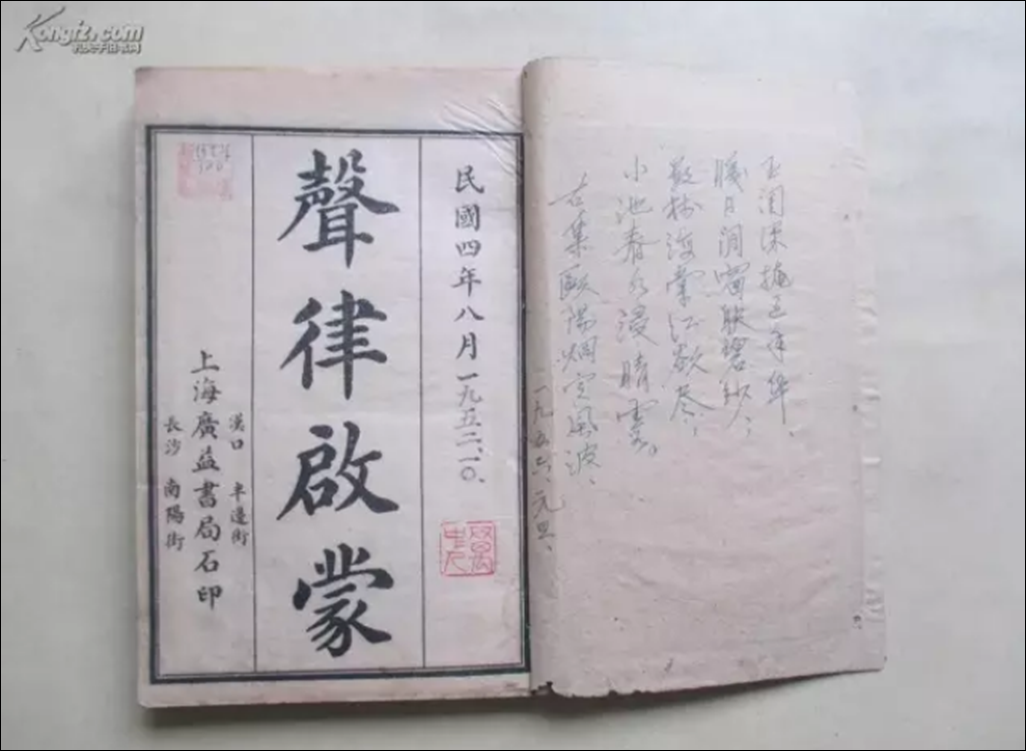 Kongfz.com
孔夫子旧书网
玉闺深掩过年华、
暖日闲窗映碧纱,
数树海棠红欲尽,
小池春水浸晴霞。
右集歐陽炯定風波、
一九五六、元旦、
民國四年八月一九五二、一〇、
聲律啟蒙
漢口 半邊街
上海廣益書局石印
長沙 南陽街